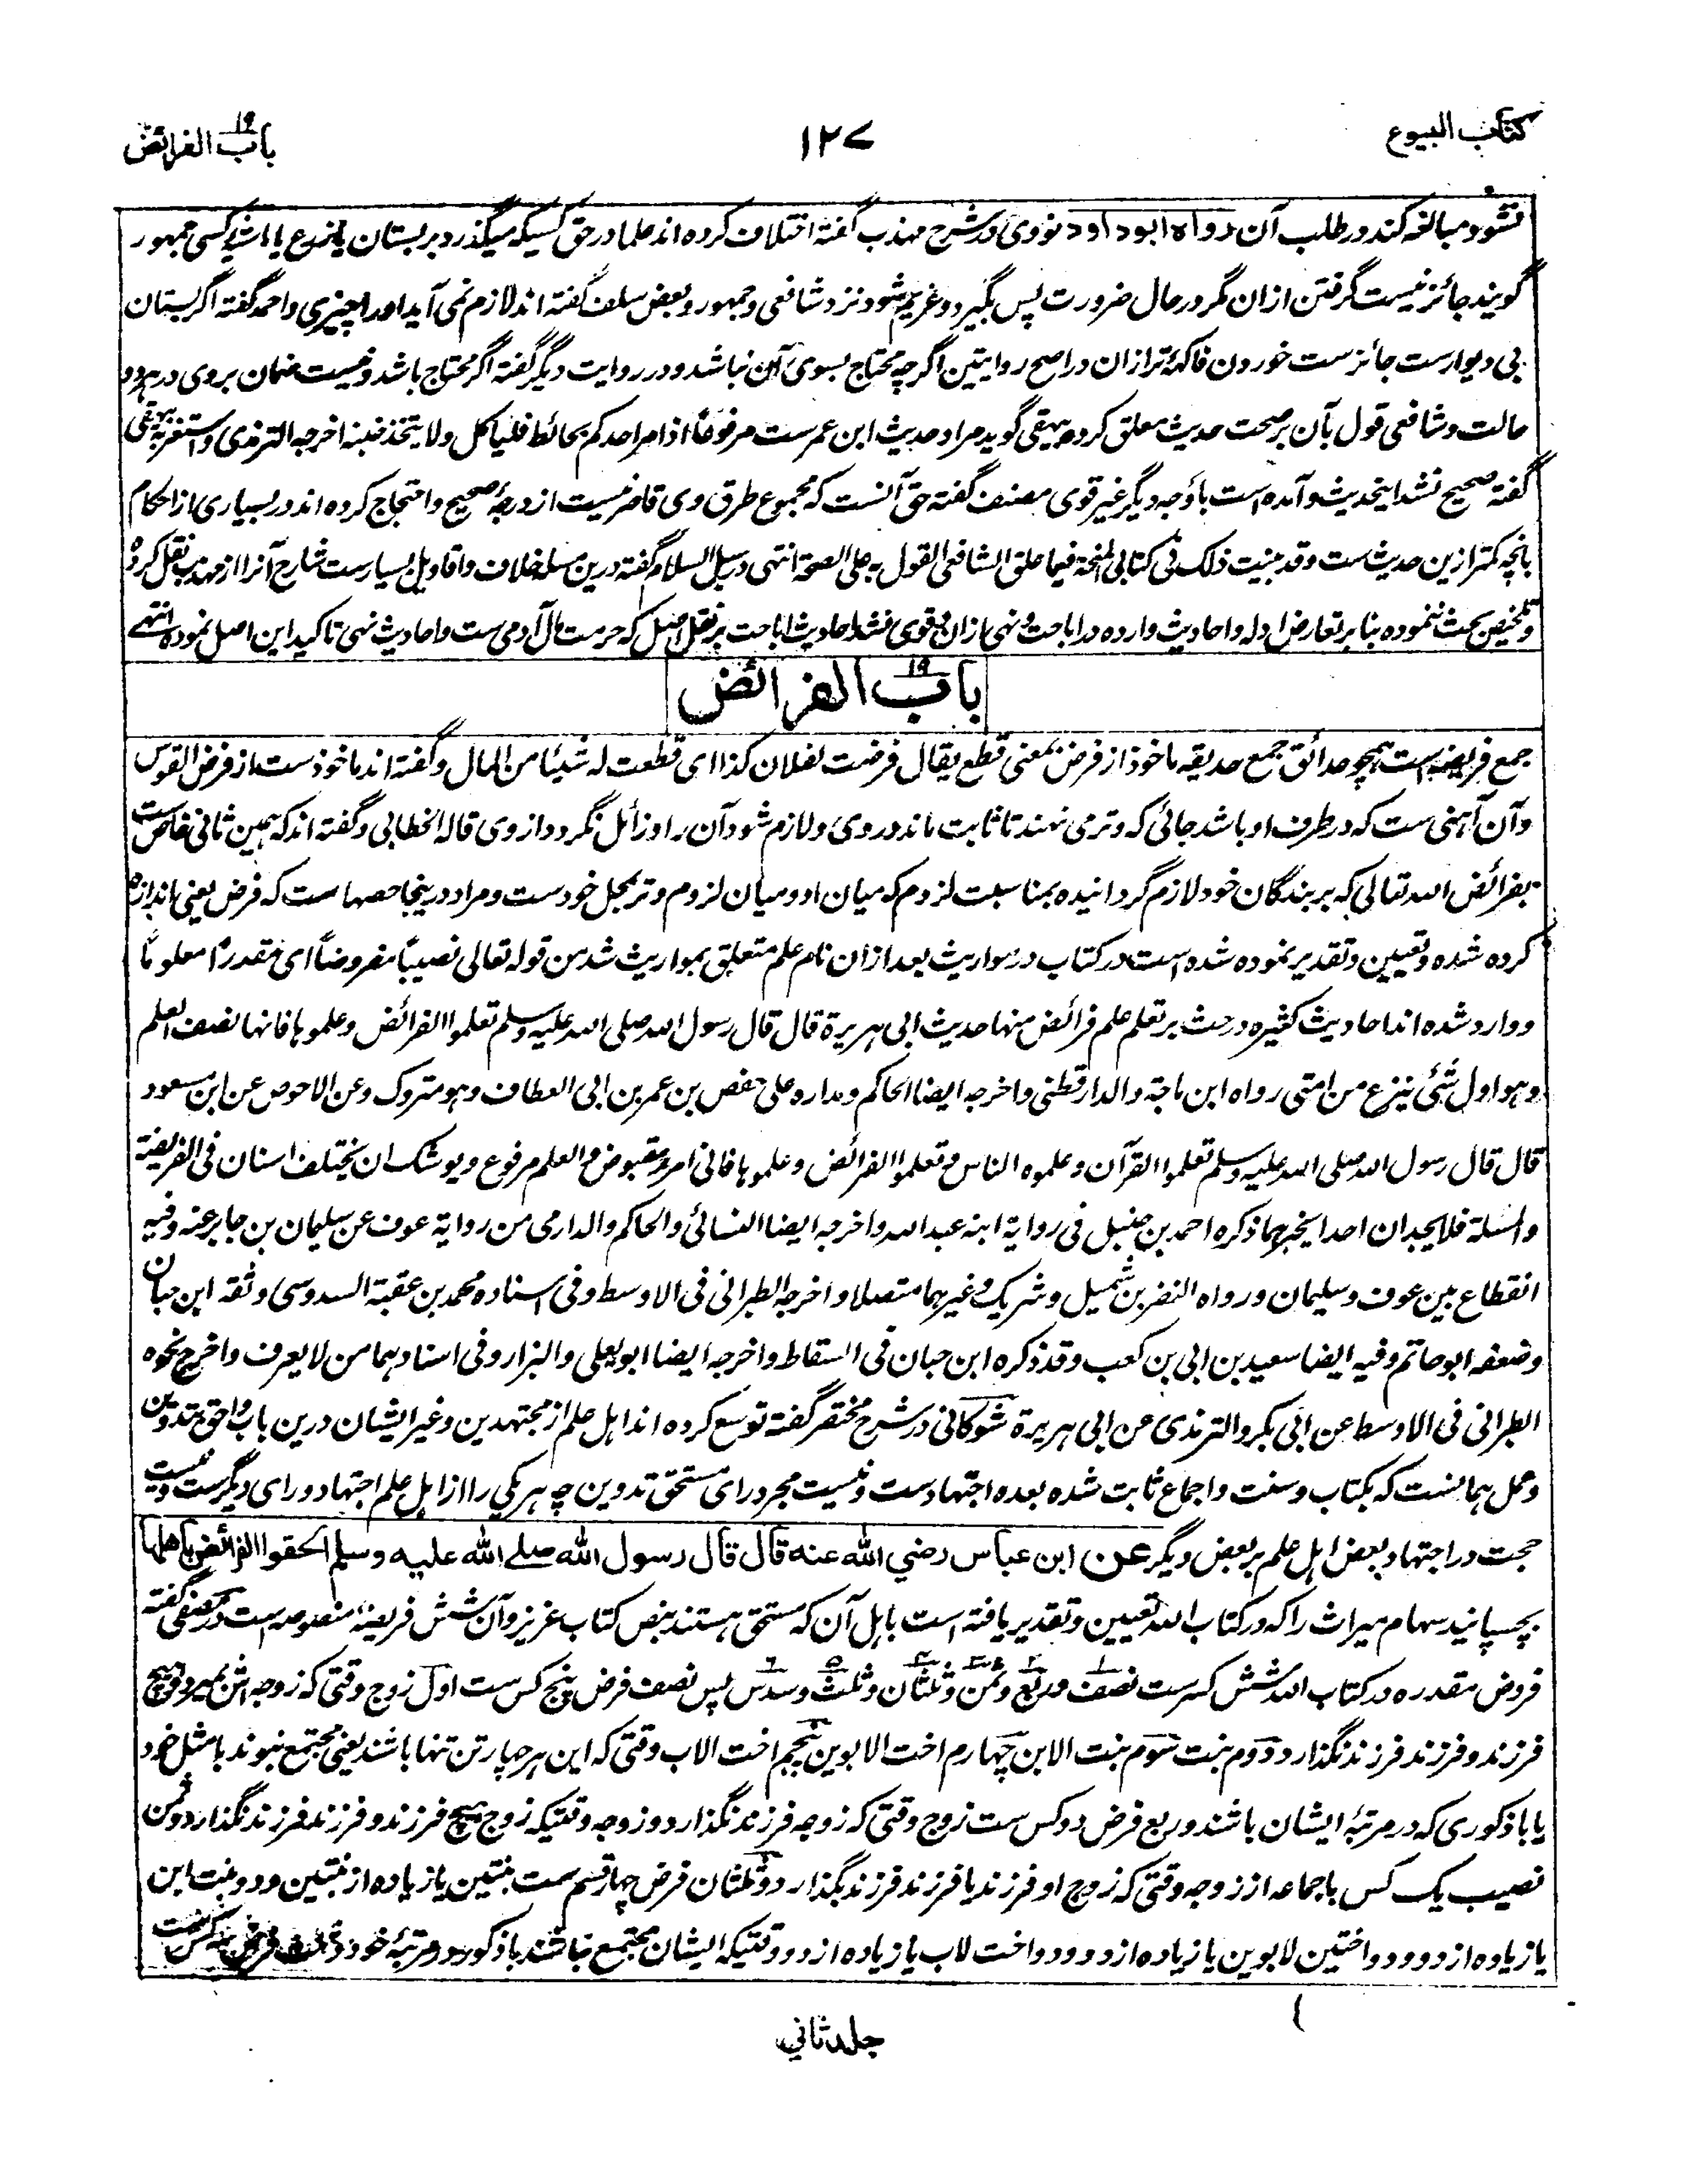 کتاب البیوع
۱۲۷
باب الفرائض ۱۹
نشود مبالغه کند در طلب آن رواه ابوداود نووی در شرح مهذب گفته اختلاف کرده اند علما در حق کسیکه میگذرد بر بستان یا زرع یا ماشیه کسی جمهور
گویند جائز نیست گرفتن ازان مگر در حال ضرورت پس بگیرد و غریم شود نزد شافعی و جمهور و بعض سلف گفته اند لازم نمی آید او را چیزی و احمد گفته اگر بستان
بی دیوارست جائزست خوردن فاکهۀ تر ازان در اصح روایتین اگرچه محتاج بسوی آن نباشد و در روایت دیگر گفته اگر محتاج باشد و نیست ضمان بروی در هر دو
حالت و شافعی قول بآن بر صحت حدیث معلق کرده بیهقی گوید مراد حدیث ابن عمرست مرفوعًا اذا مر احدکم بحائط فلیاکل ولا یتخذ خبنة اخرجه الترمذی واستغربه بیهقی
گفته صحیح نشد اینحدیث و آمده است باوجه دیگر غیر قوی مصنف گفته حق آنست که مجموع طرق وی قاصر نیست از درجۀ صحیح و احتجاج کرده اند در بسیاری از احکام
بانچه کمتر ازین حدیث ست وقد بینت ذلک فی کتابی المنحة فیما علق الشافعی القول به علی الصحة انتهی در سبل السلام گفته درین مسله خلاف و اقاویل بسیارست شارح آنرا از مهذب نقل کرده
و تلخیص بحث ننموده بنا بر تعارض ادله و احادیث وارده در اباحت و نهی ازان و قوی نشد احادیث اباحت بر نقل اصل که حرمت مال آدمی ست و احادیث نهی تاکید این اصل نموده انتهے
باب الفرائض ۱۹
جمع فریضه است همچو حدائق جمع حدیقه ماخوذ از فرض بمعنی قطع یقال فرضت لفلان کذا ای قطعت له شیئا من المال و گفته اند ماخوذست از فرض القوس
و آن آهنی ست که در طرف او باشد جائی که وتر می نهند تا ثابت ماند در وی و لازم شود آن را و زائل نگردد از وی قاله الخطابی و گفته اند که همین ثانی خاص ست
بفرائض الله تعالی که بر بندگان خود لازم گردانیده بمناسبت لزوم که میان او و میان لزوم وتر بمحل خودست و مراد درینجا حصها ست که فرض یعنی اندازه
کرده شده و تعیین و تقدیر نموده شده است در کتاب در مواریث بعد ازان نام علم متعلق بمواریث شد من قوله تعالی نصیبًا مفروضًا ای مقدرًا معلومًا
و وارد شده اند احادیث کثیره در حث بر تعلم علم فرائض منها حدیث ابی هریرة قال قال رسول الله صلی الله علیه وسلم تعلموا الفرائض وعلموها فانها نصف العلم
وهو اول شئی ینزع من امتی رواه ابن ماجة والدارقطنی واخرجه ایضا الحاکم ومداره علی حفص بن عمر بن ابی العطاف وهو متروک وعن الاحوص عن ابن مسعود
قال قال رسول الله صلی الله علیه وسلم تعلموا القرآن وعلموه الناس وتعلموا الفرائض وعلموها فانی امرء مقبوض والعلم مرفوع ویوشک ان یختلف اسنان فی الفریضة
والمسئلة فلا یجدان احدا یخبرهما ذکره احمد بن حنبل فی روایة ابنه عبدالله واخرجه ایضا النسائی والحاکم والدارمی من روایة عوف عن سلیمان بن جابر عنه وفیه
انقطاع بین عوف وسلیمان ورواه النضر بن شمیل وشریک وغیرهما متصلا واخرجه الطبرانی فی الاوسط وفی اسناده محمد بن عقبة السدوسی وثقه ابن حبان
وضعفه ابو حاتم وفیه ایضا سعید بن ابی بن کعب وقد ذکره ابن حبان فی السقاط واخرجه ایضا ابو یعلی والبزار وفی اسنادهما من لا یعرف واخرج نحوه
الطبرانی فی الاوسط عن ابی بکر والترمذی عن ابی هریرة شوکانی در شرح مختصر گفته توسع کرده اند اهل علم از مجتهدین و غیر ایشان درین باب و احق بتدوین
و عمل همانست که بکتاب و سنت و اجماع ثابت شده بعده اجتهادست و نیست مجرد رای مستحق تدوین چه هر یکی را از اهل علم اجتهاد و رای دیگرست و نیست
حجت در اجتهاد بعض اهل علم بر بعض دیگر عن ابن عباس رضي الله عنه قال قال رسول الله صلے الله علیه وسلم الحقوا الفرائض باهلها
بچسپانید سهام میراث را که در کتاب الله تعیین و تقدیر یافته است باهل آن که مستحق هستند بنص کتاب عزیز و آن شش فریضۀ منصوصه است در مصفی گفته
فروض مقدره در کتاب الله شش کسرست نصف و ربع و ثمن و ثلثان و ثلث و سدس پس نصف فرض پنج کس ست اول زوج وقتی که زوجه اش بمیرد و هیچ
فرزند و فرزند فرزند نگذارد دوم بنت سوم بنت الابن چهارم اخت الابوین پنجم اخت الاب وقتی که این هر چهار تن تنها باشند یعنی مجتمع نبوند با مثل خود
یا با ذکوری که در مرتبۀ ایشان باشند و ربع فرض دو کس ست زوج وقتی که زوجه فرزند نگذارد و زوجه وقتیکه زوج هیچ فرزند و فرزند فرزند نگذارد و ثمن
نصیب یک کس با جماعه از زوجه وقتی که زوج او فرزند یا فرزند فرزند بگذارد و ثلثان فرض چهار قسم ست بنتین یا زیاده از بنتین و دو بنت ابن
یا زیاده از دو و دو اختین لابوین یا زیاده از دو و دو اخت لاب یا زیاده از دو وقتیکه ایشان مجتمع نباشند با ذکور در مرتبۀ خود و ثلث فرض سه کس ست
جلد ثاني